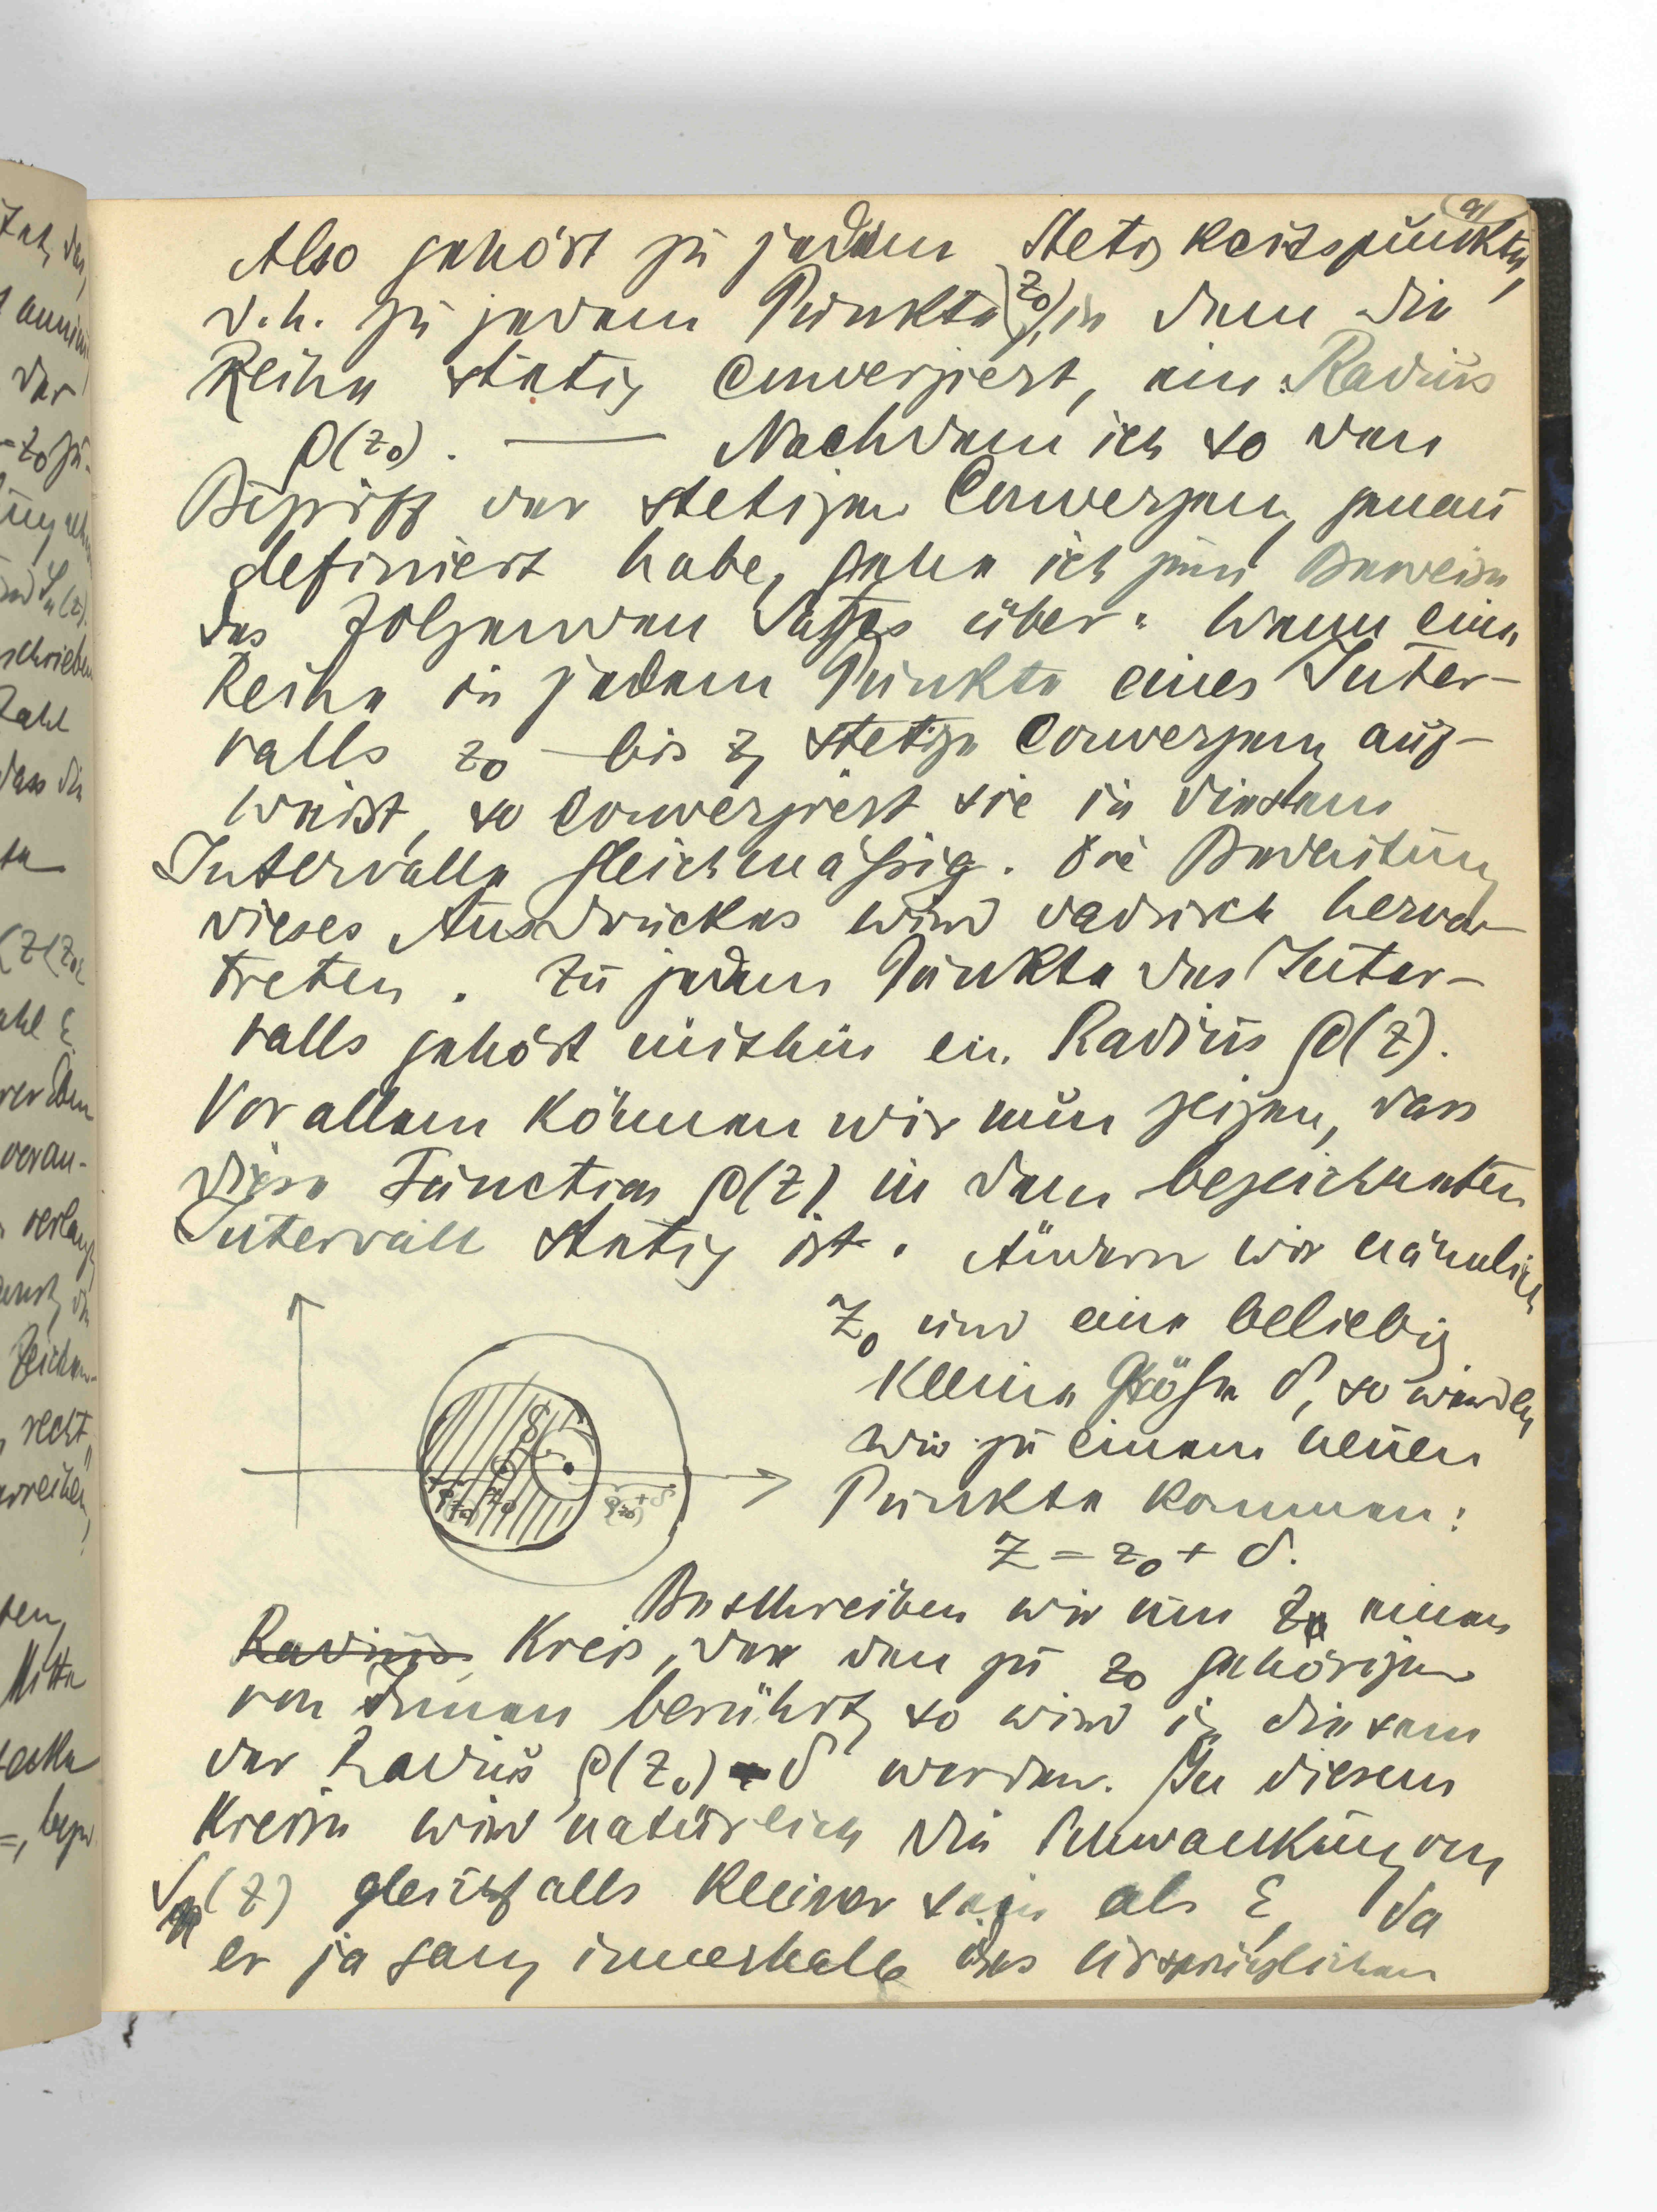 91
Also gehört zu jedem Stetigkeitspunkte,
d.h. zu jedem Punkte (z₀), in dem die
Reihe stetig convergiert, ein Radius
ρ(z₀). — Nachdem ich so den
Begriff der stetigen Convergenz genau
definiert habe, gehe ich zum Beweise
des folgenden Satzes über: Wenn eine
Reihe in jedem Punkte eines Inter-
valls z₀ bis z₁ stetige Convergenz auf-
weist, so convergiert sie in diesem
Intervalle gleichmäßig. Die Bedeutung
dieses Ausdruckes wird dadurch hervor
treten. Zu jedem Punkte des Inter-
valls gehört mithin ein Radius ρ(z).
Vor allem können wir nun zeigen, dass
diese Function ρ(z) in dem bezeichneten
Intervall stetig ist. Ändern wir nämlich
z₀ um eine beliebig
kleine Größe δ, so werden
wir zu einem neuen
Punkte kommen:
z = z₀ + δ.
Beschreiben wir um z einen
Radius Kreis, der den zu z₀ gehörigen
von Innen berührt, so wird in diesem
der Radius ρ(z₀) - δ werden. In diesem
Kreise wird natürlich die Schwankung von
(z) gleichfalls kleiner sein als ε, da
er ja ganz innerhalb des ursprünglichen